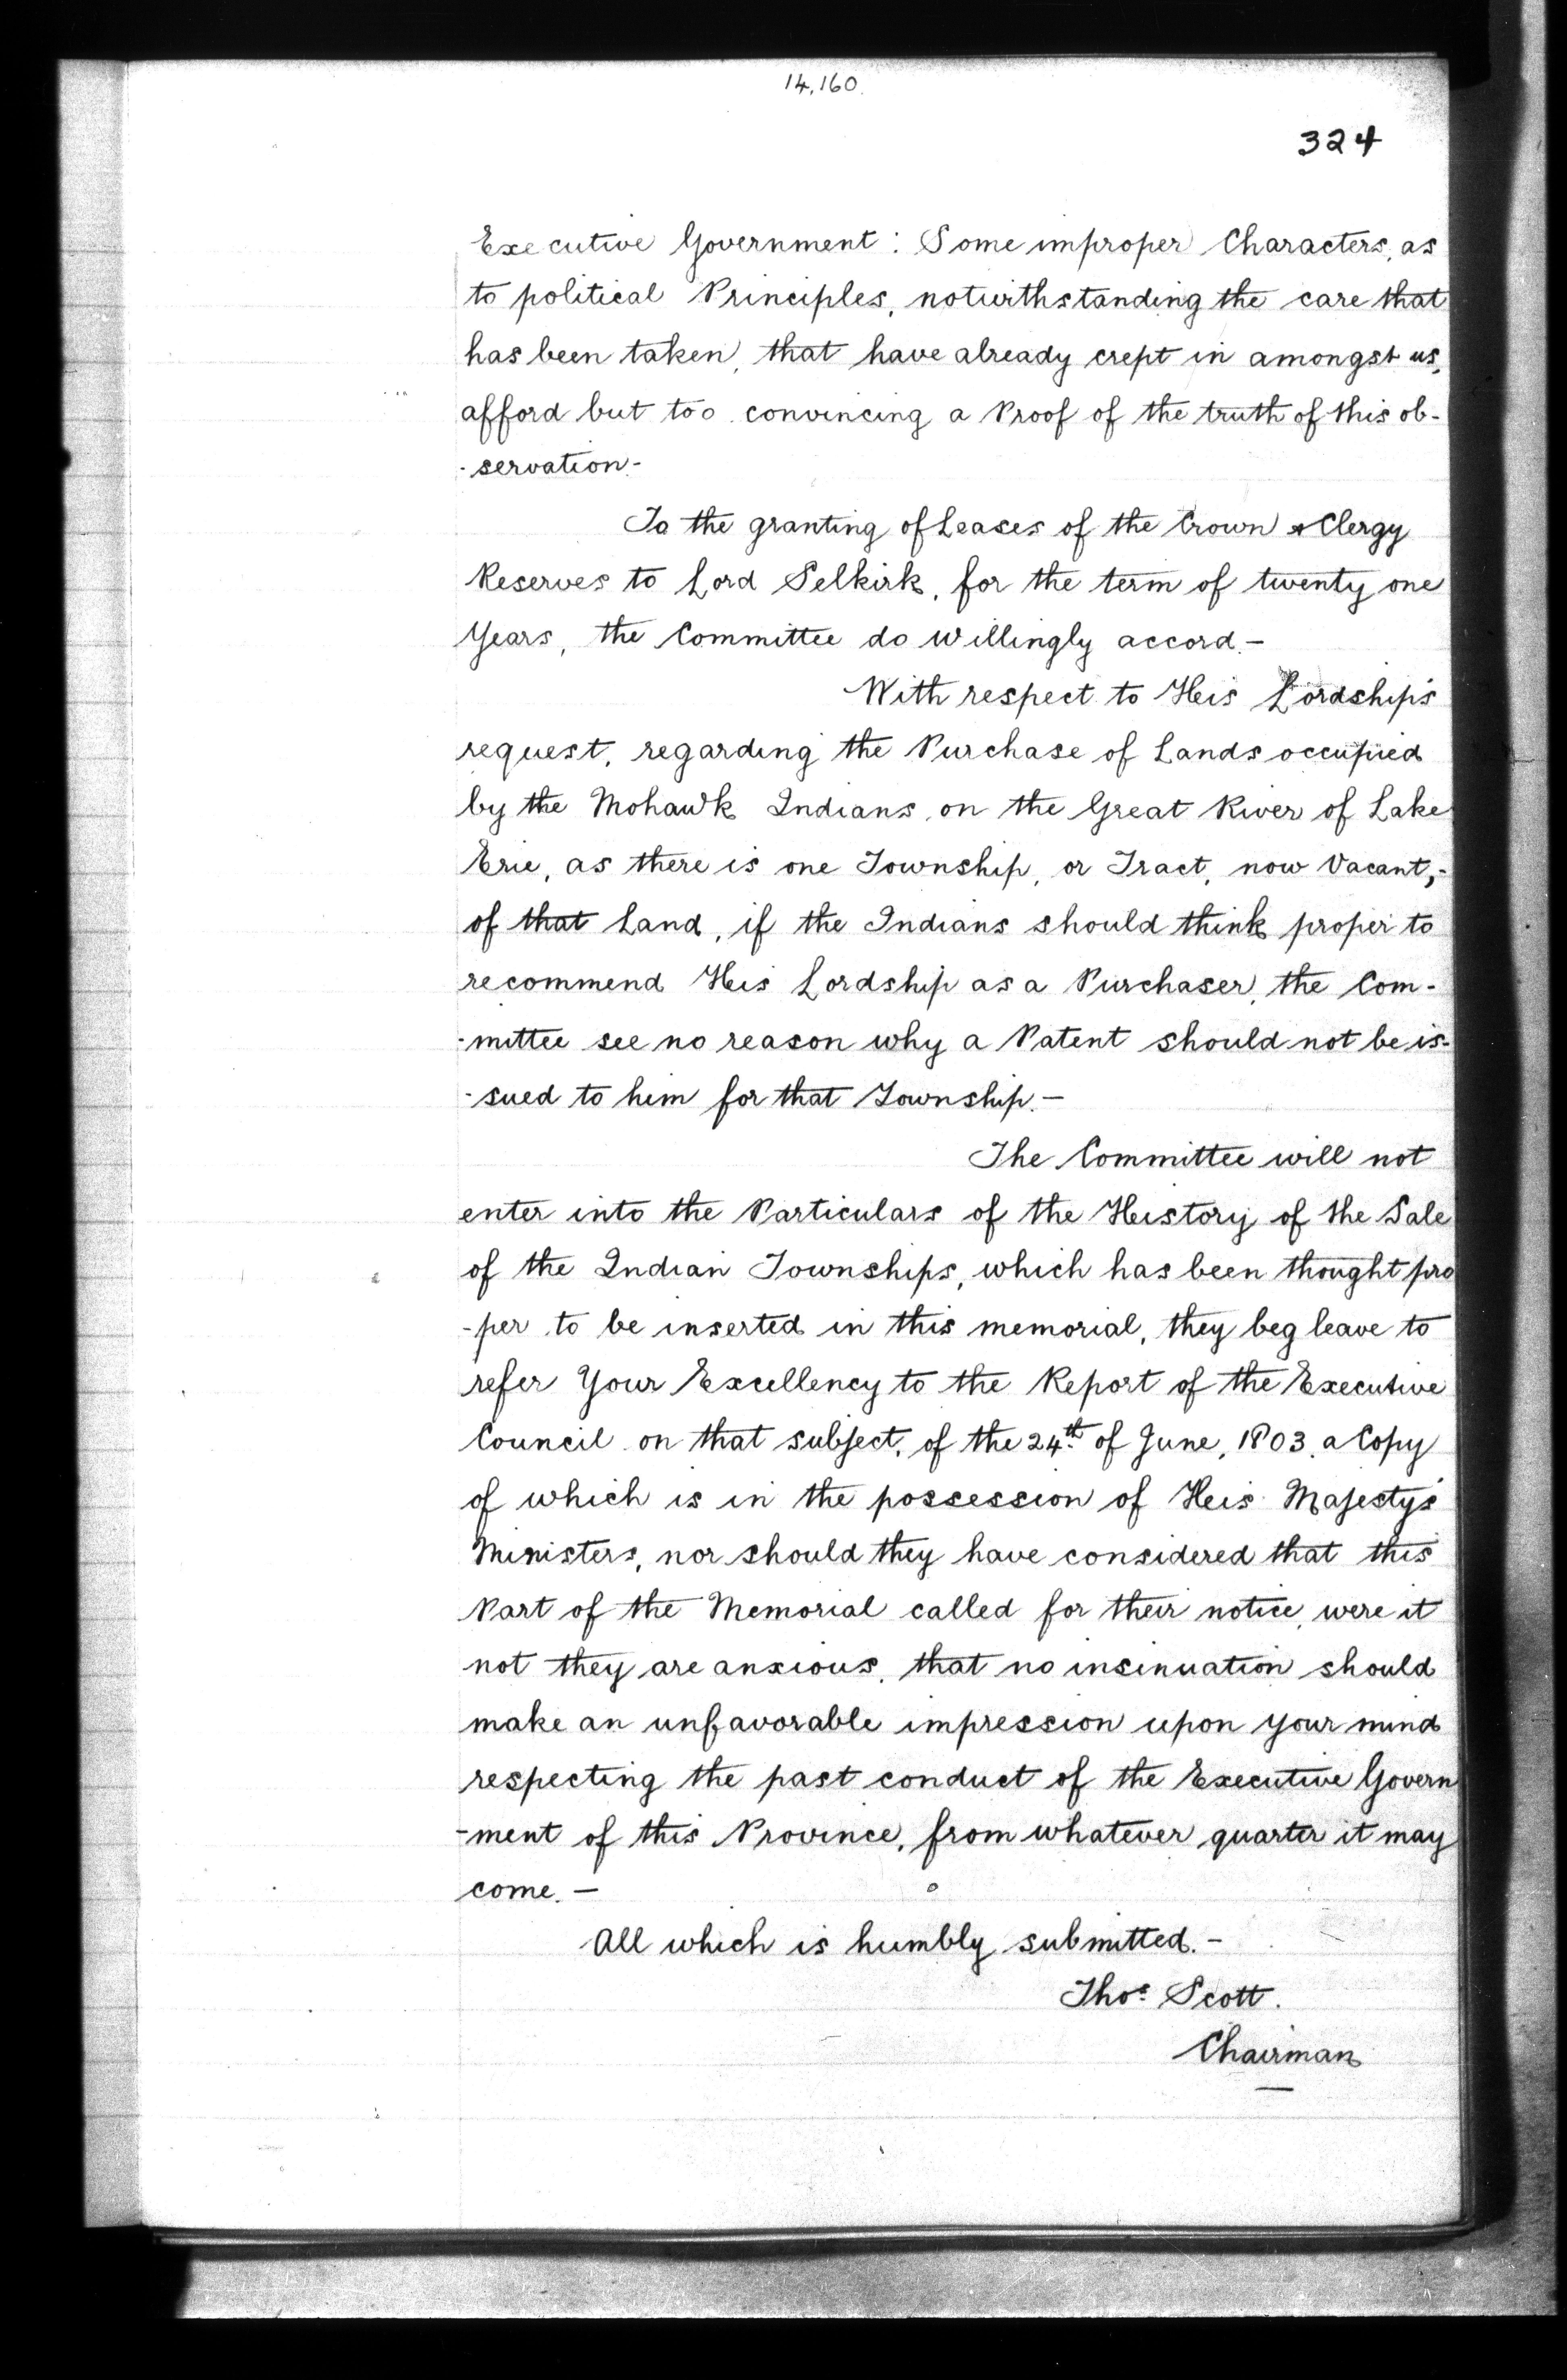 14,160.
324
Executive Government: Some improper Characters, as
to political Principles, notwithstanding the care that
has been taken, that have already crept in amongst us,
afford but too convincing a Proof of the truth of this ob-
-servation.-
To the granting of Leases of the Crown & Clergy
Reserves to Lord Selkirk, for the term of twenty one
Years, the Committee do willingly accord.-
With respect to His Lordship's
request, regarding the Purchase of Lands occupied
by the Mohawk Indians, on the Great River of Lake
Erie, as there is one Township, or Tract, now Vacant,-
of that Land, if the Indians should think proper to
recommend His Lordship as a Purchaser, the Com-
-mittee see no reason why a Patent should not be is-
-sued to him for that Township.-
The Committee will not
enter into the Particulars of the History of the Sale
of the Indian Townships, which has been thought pro
-per to be inserted in this memorial, they beg leave to
refer Your Excellency to the Report of the Executive
Council on that subject, of the 24th of June, 1803, a Copy
of which is in the possession of His Majesty's
Ministers, nor should they have considered that this
Part of the Memorial called for their notice, were it
not they are anxious, that no insinuation should
make an unfavorable impression upon your mind
respecting the past conduct of the Executive Govern
-ment of this Province, from whatever quarter it may
come.-
All which is humbly submitted.-
Thos Scott.
Chairman